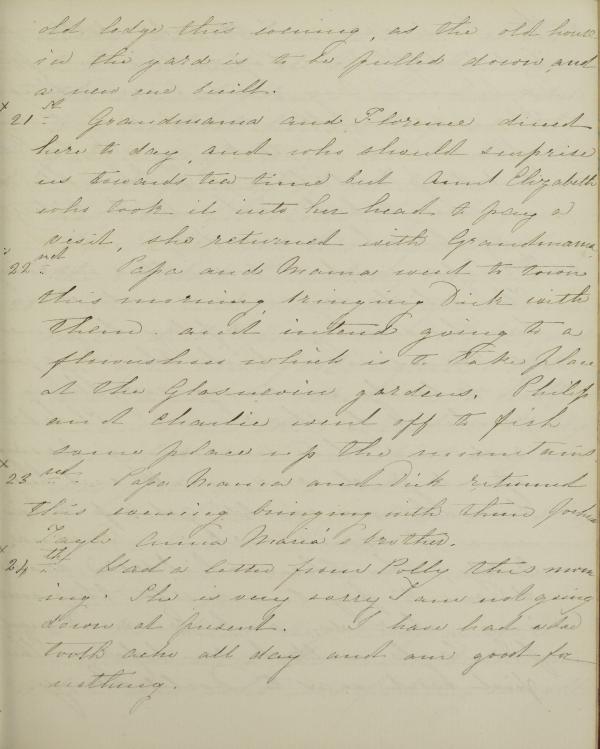 old lodge this evening, as the old house
in the yard is to be pulled down and
a new one built.
x 21st Grandmama and Florence dined
here to day, and who should surprise
us towards tea time but Aunt Elizabeth
who took it into her head to pay a
visit, she returned with Grandmama.
x 22nd Papa and Mama went to town
this morning bringing Dick with
them. and intend going to a
flowershow which is to take place
at the Glasnevin gardens. Philip
and Charlie went off to fish
some place up the mountains
x 23rd Papa Mama and Dick returned
this evening bringing with them Joshua
Anna Maria's brother.
x 24th Had a letter from Polly this morn
ing. She is very sorry I am not going
down at present. I have had a
tooth ache all day and am good for
nothing.